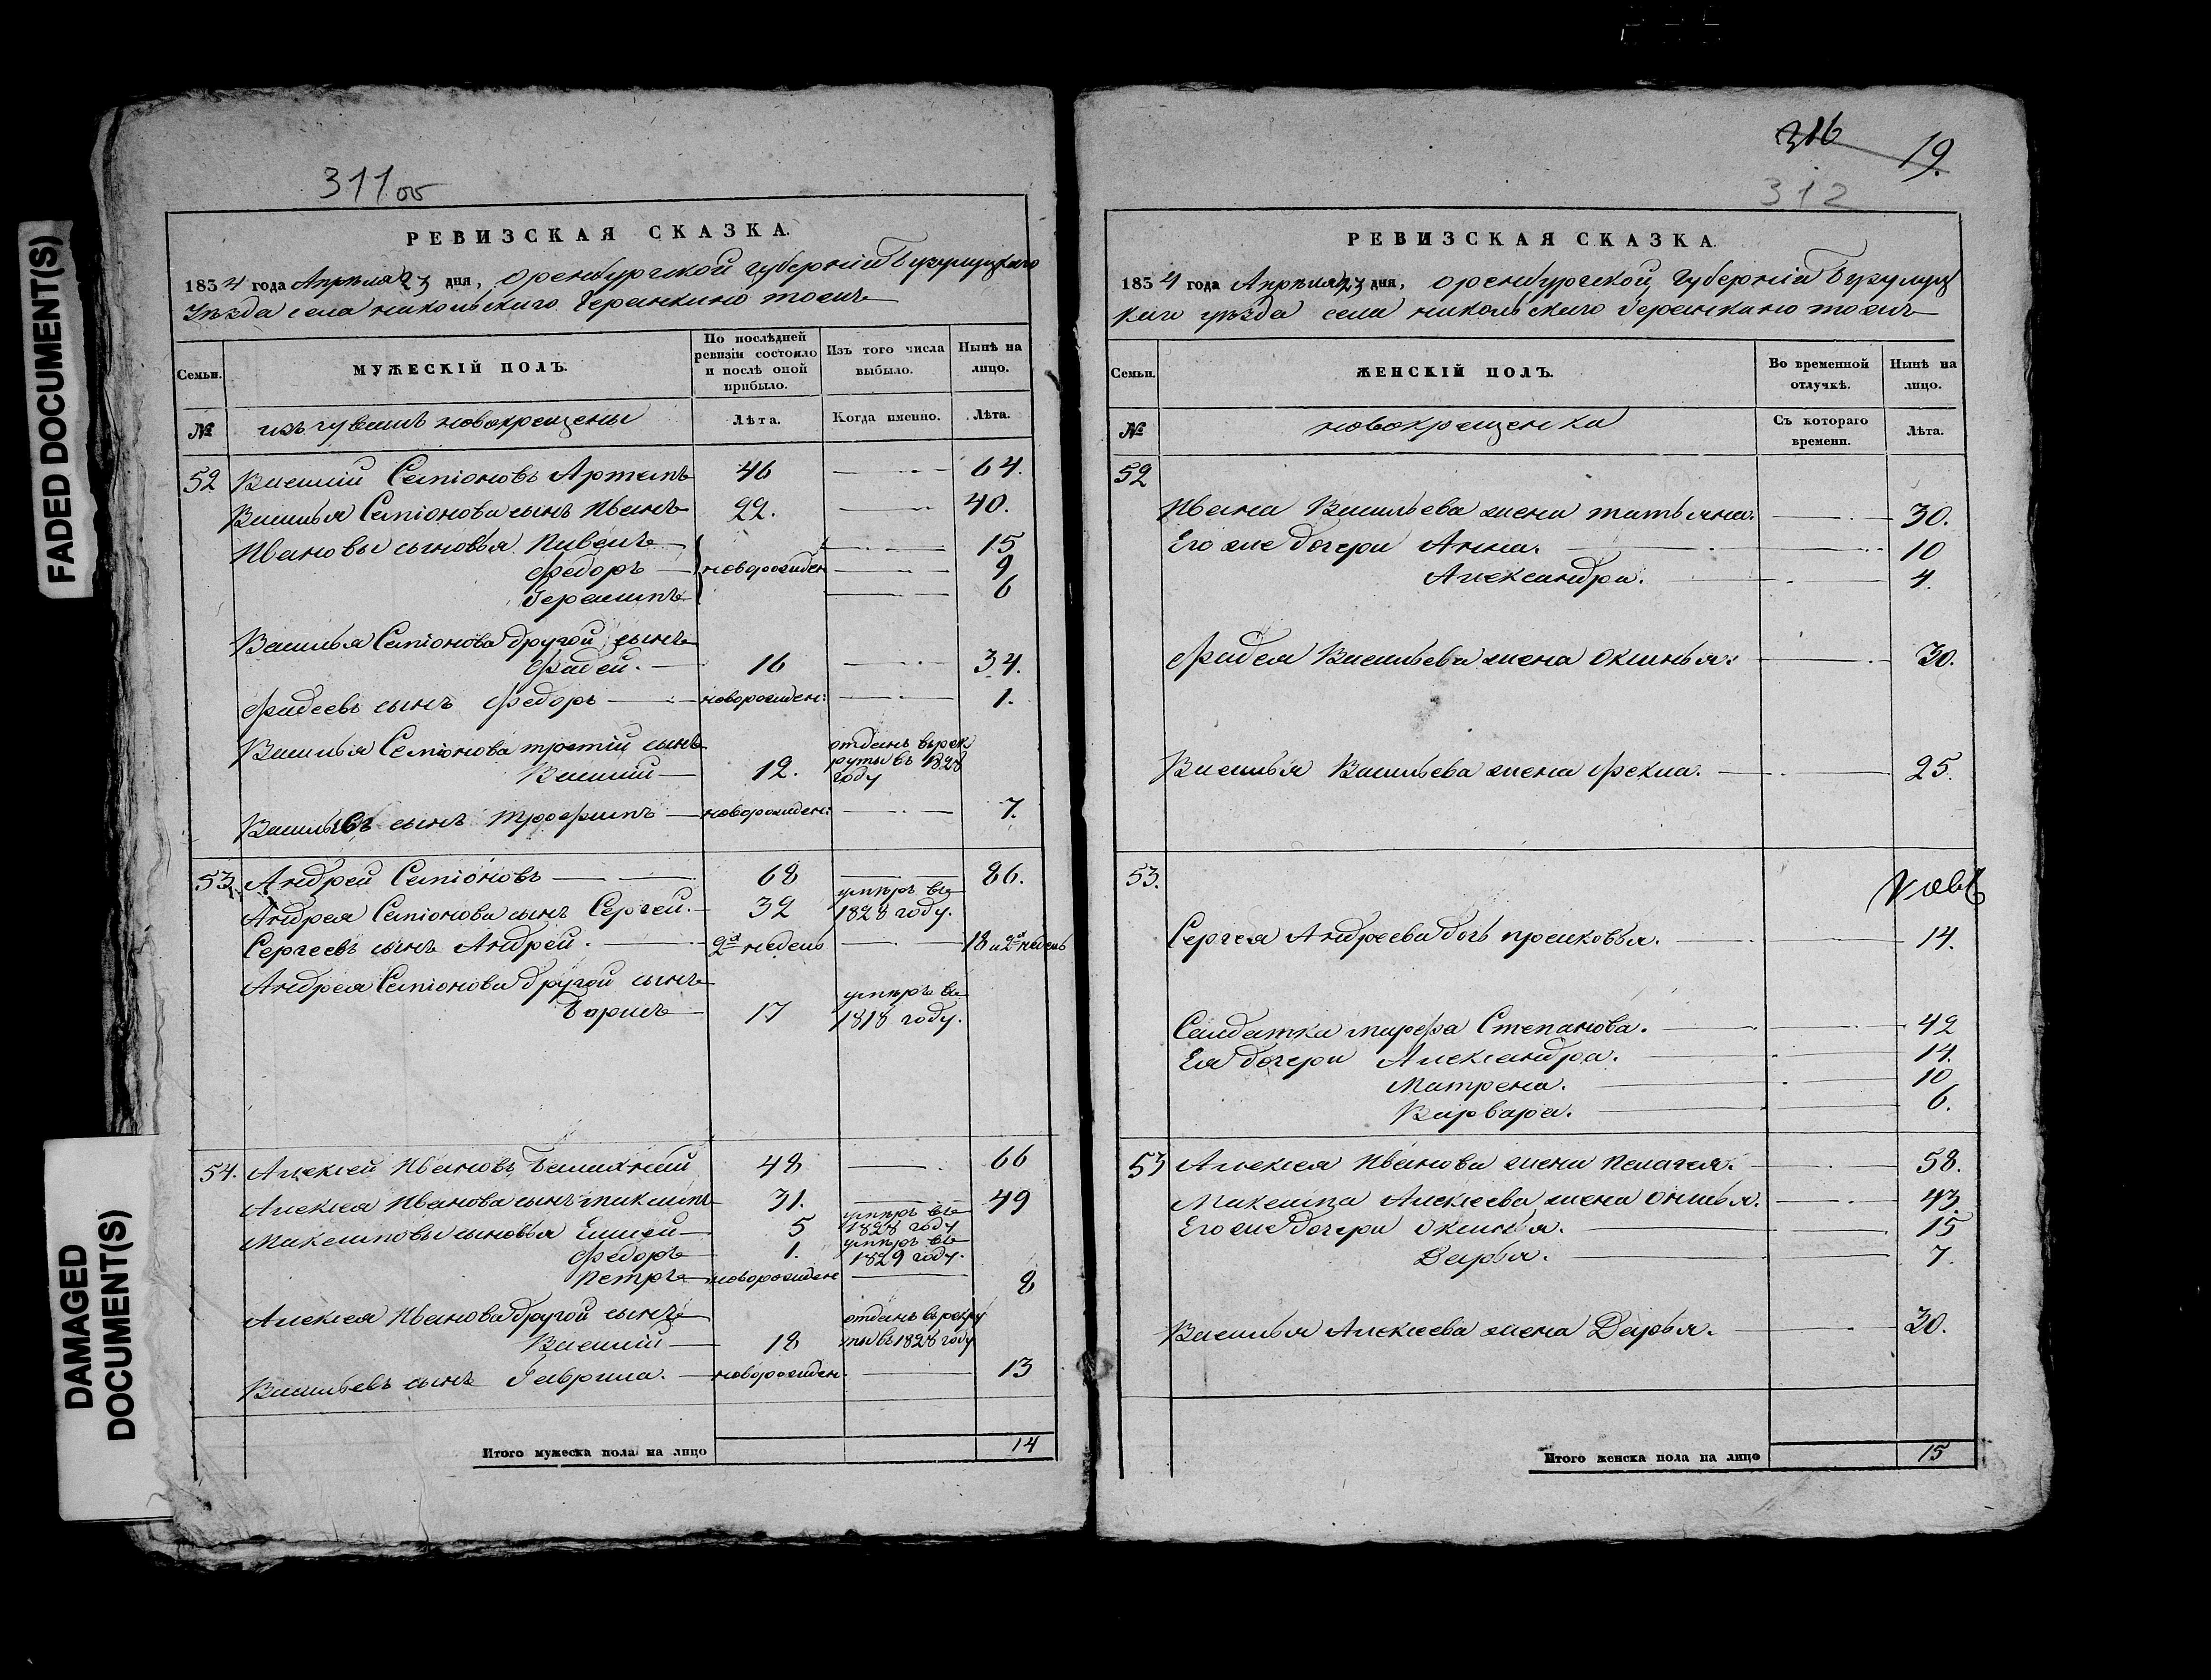 FADED DOCUMENT(S)
DAMAGED
DOCUMENT(S)
311 об
РЕВИЗСКАЯ СКАЗКА.
1834 года Апреля 23 дня, Оренбургской губерніи Бузулуцкаго
Уезда села никольскаго Геранкино тожъ
Семьи.
МУЖЕСКІЙ ПОЛЪ.
По последней ревизіи состояло и после оной прибыло.
Изъ того числа выбыло.
Ныне на лицо.
№
изъ чувашъ новокрещены
Лета.
Когда именно.
Лета.
52 Василій Семіоновъ Артемъ 46 64.
Василья Семіонова сынъ Иванъ 22. 40.
Ивановы сыновья Павелъ 15
Федоръ новорожден 9
Герасимъ 6
Василья Семіонова другой сынъ
Фадей. 16 34.
Фадеевъ сынъ Федоръ новорожден: 1.
Василья Семіонова третій сынъ
Василій 12. отданъ въ рек
руты въ 1828
году
Васильевъ сынъ Трофимъ новорожден: 7.
53. Андрей Семіоновъ 68 86.
Андрея Семіонова сынъ Сергей. 32 умеръ въ
1828 году.
Сергеевъ сынъ Андрей. 2х недель 18 и 2х недель
Андрея Семіонова другой сынъ
Борисъ 17 умеръ въ
1818 году.
54. Алексей Ивановъ 48 66
Алексея Иванова сынъ Микешпа 31. 49
сыновья Елисей 5 умеръ въ
1828 году
Федоръ 1. умеръ въ
1829 году.
Петръ новорожден 8
Алексея Иванова другой сынъ
Василій 18 отданъ въ рекру
ты въ 1828 году
Васильевъ сынъ Гаврила. новорожден. 13
Итого мужеска пола на лицо 14
316
19.
312
РЕВИЗСКАЯ СКАЗКА.
1834 года Апреля 23 дня, Оренбургской Губерніи Бузулуц
каго уезда села никольскаго Геранкино тожъ
Семьи.
ЖЕНСКІЙ ПОЛЪ.
Во временной отлучке.
Ныне на лицо.
№
новокрещенки
Съ котораго времени.
Лета.
52
Ивана Васильева жена татьяна. 30.
Его же дочери Анна. 10
Александра. 4.
Фадея Васильева жена Оксинья. 30.
Василья Васильева жена Фекла. 25.
53.
Сергея Андреева дочь прасковья. 14.
Салдатка марфа Степанова. 42
Ея дочери Александра. 14.
Матрена. 10
Варвара. 6.
53 Алексея Иванова жена Пелагея. 58.
Алексеева жена 43.
Его же дочери Оксинья. 15
Дарья. 7.
Василья Алексеева жена Дарья. 30.
Итого женска пола на лицо 15